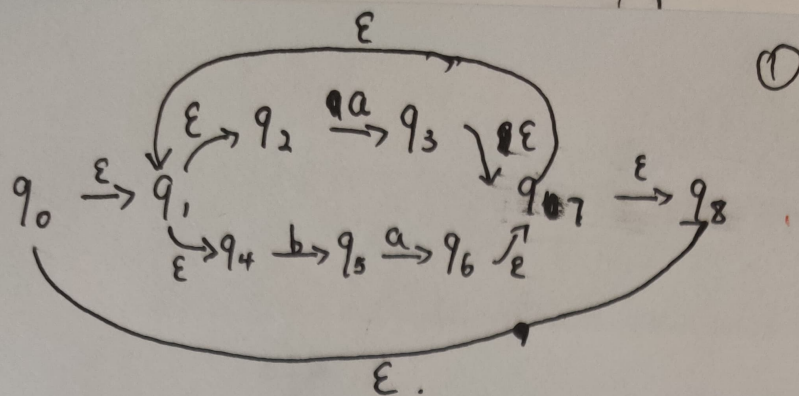 ε
①
ε q₂ a q₃ ε
q₀ ε q₁ q₇ ε q₈
ε q₄ b q₅ a q₆ ε
ε.